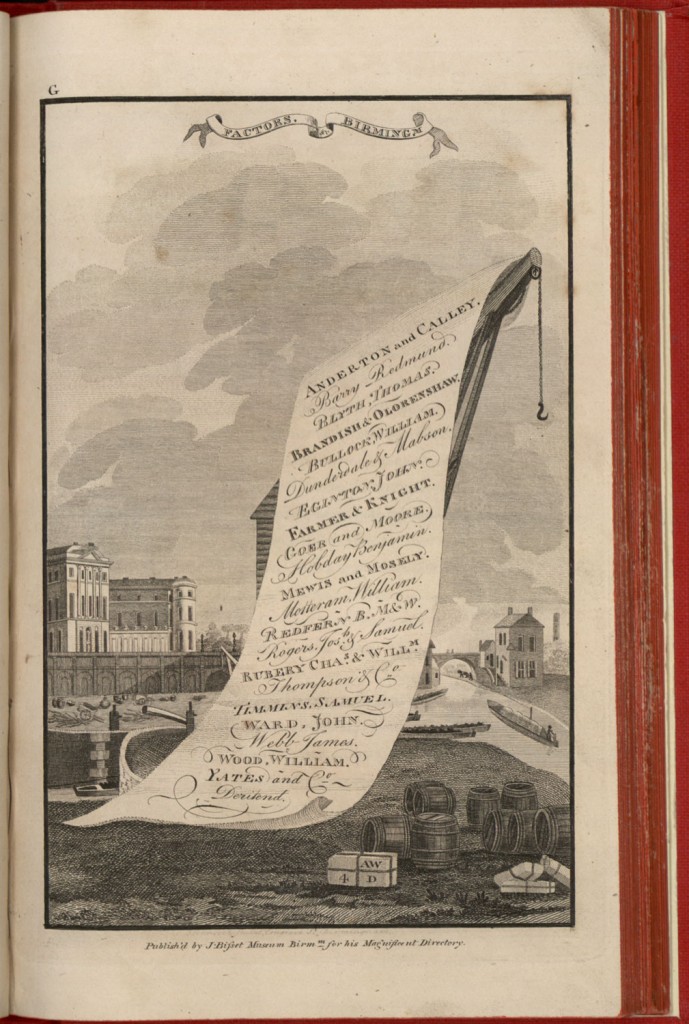 G
FACTORS, BIRMINGM
ANDERTON and CALLEY.
Barry Redmund.
BLYTH, THOMAS.
BRANDISH & OLORENSHAW.
BULLOCK, WILLIAM.
Dunderdale & Mabson.
EGINTON, JOHN.
FARMER & KNIGHT.
GOER and MOORE.
Hobday Benjamin.
MEWIS and MOSELY.
Motteram, William.
REDFERN, B. M & W.
Rogers, Josh. & Samuel.
RUBERY CHAs. & WILLM
Thompson & Co
TIMMINS, SAMUEL.
WARD, JOHN.
Webb James.
WOOD, WILLIAM.
YATES and Co
Deritend.
AW
4 D
Publish'd by J. Bisset Museum Birmm for his Magnificent Directory.